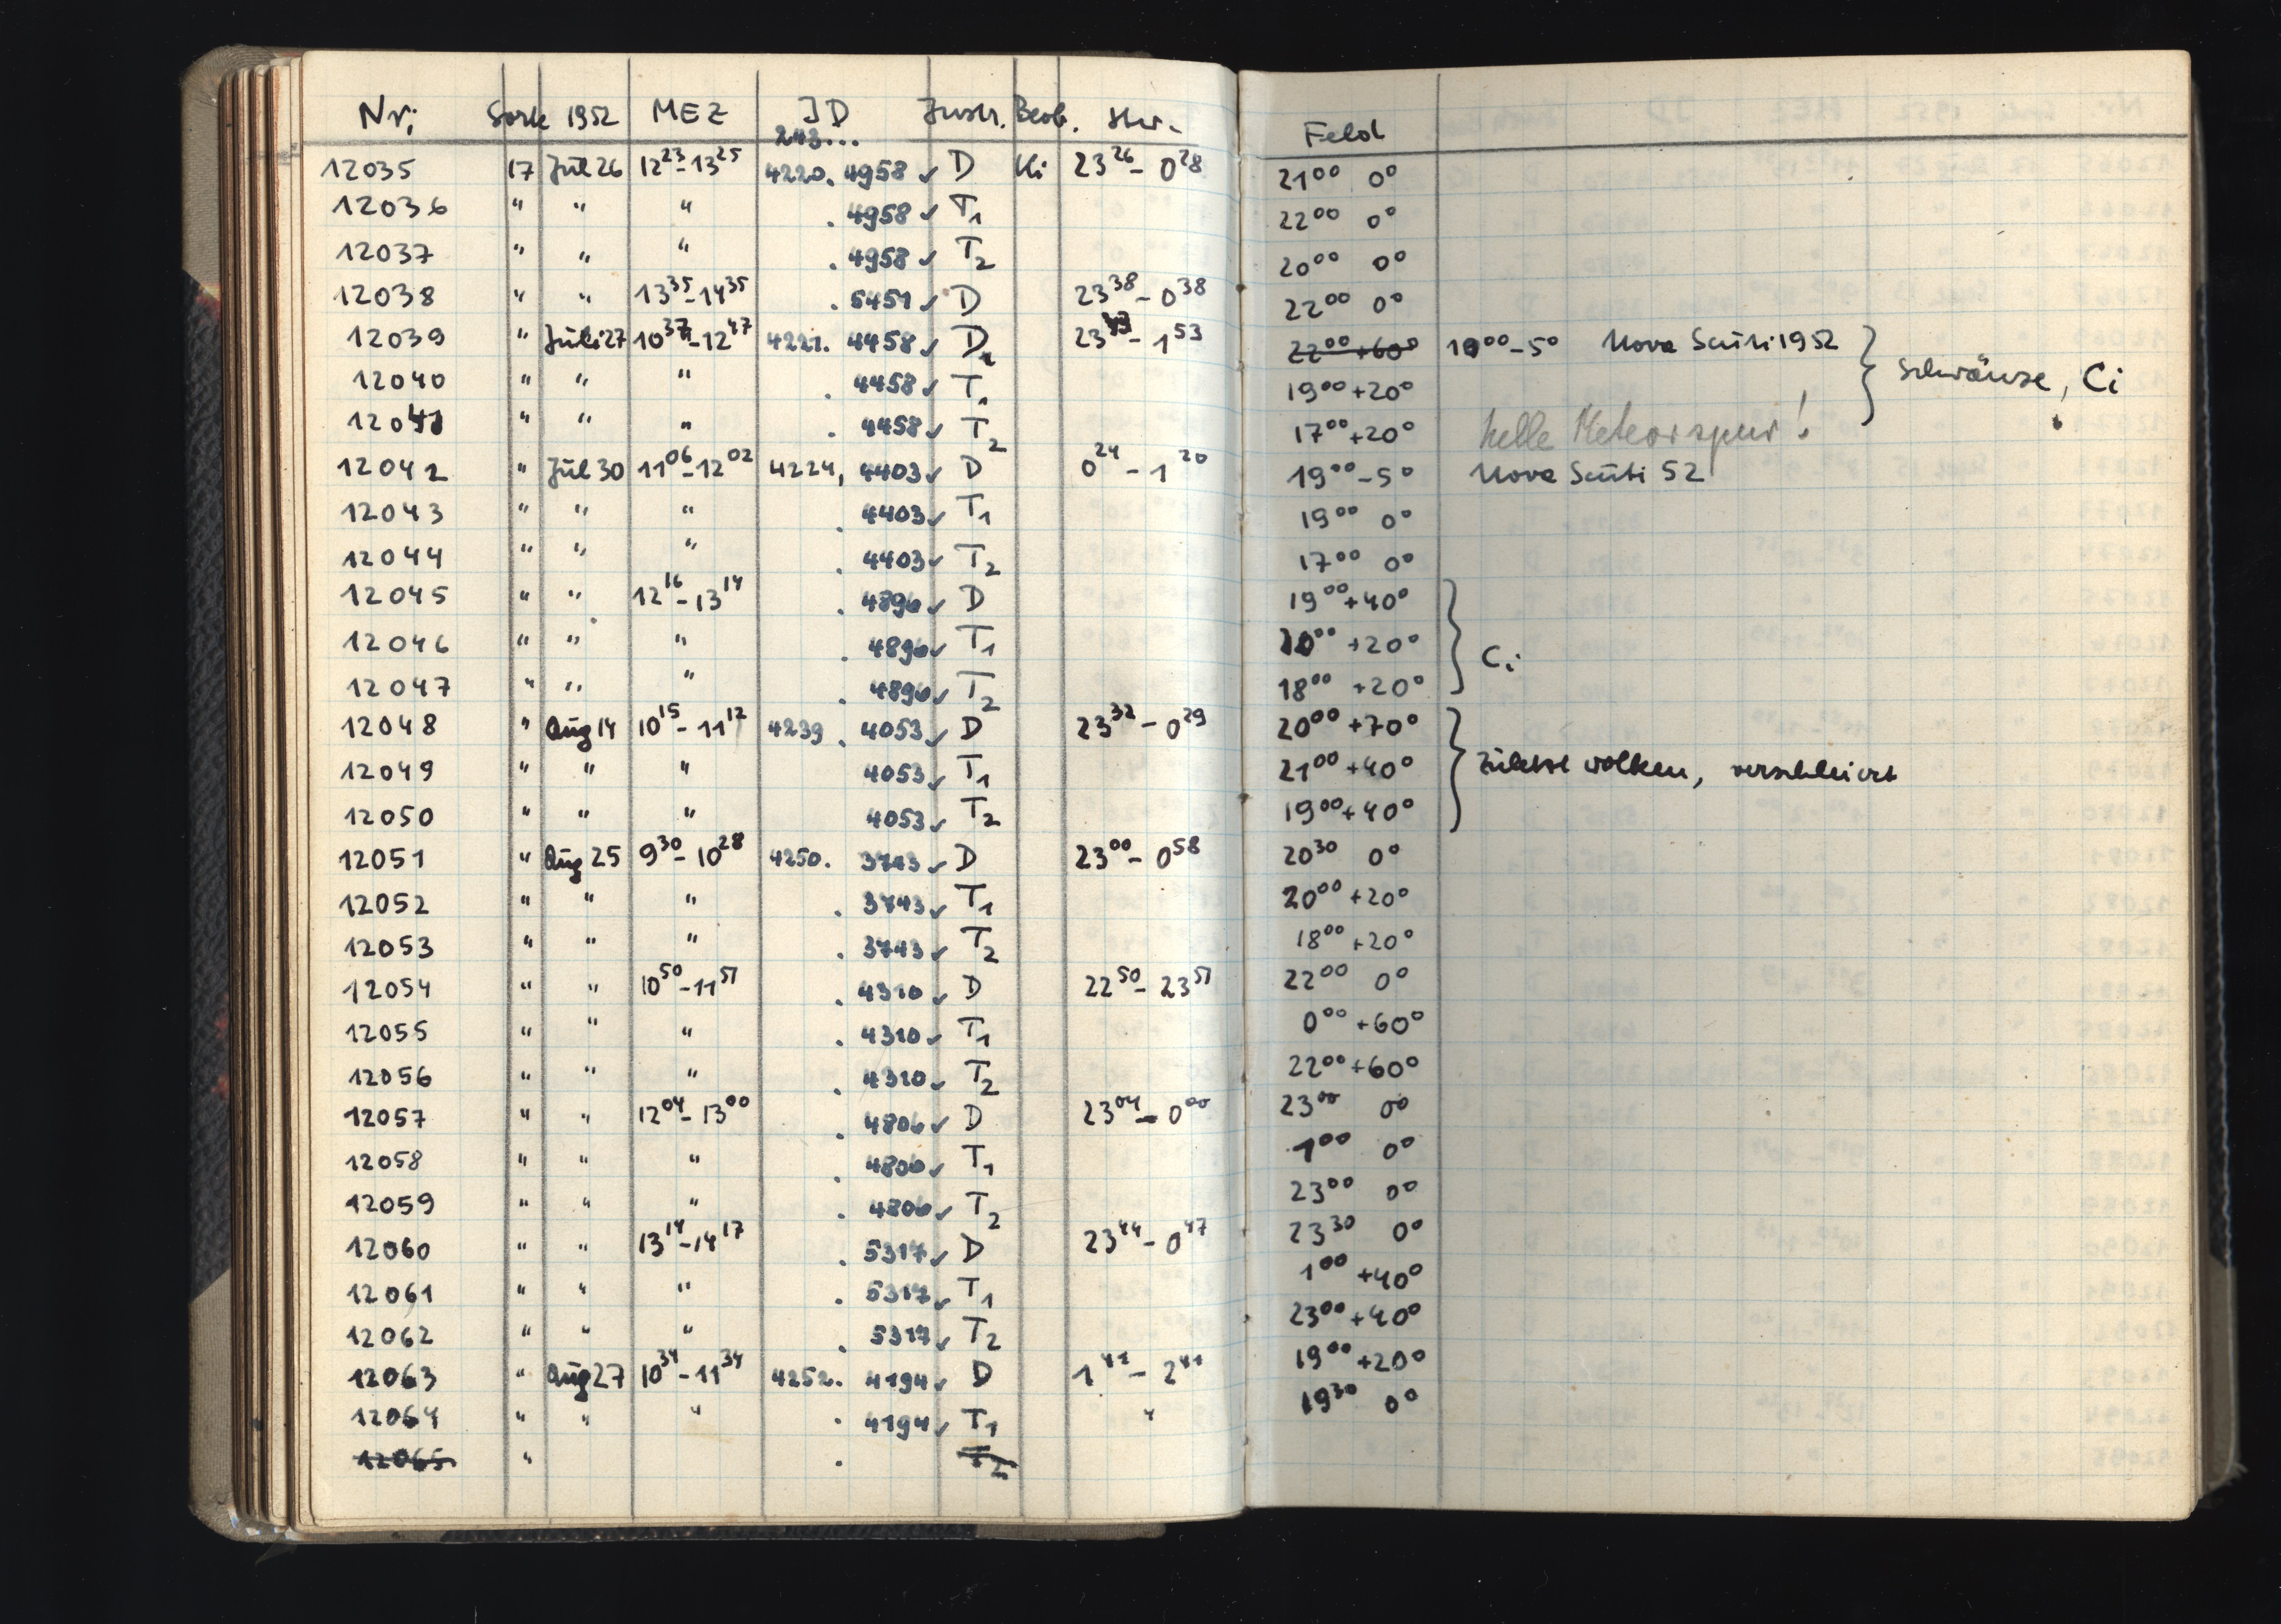 Nr. Sorte 1952 MEZ JD Instr. Beob. Stw. Feld
243...
12035 17 Jul 26 12 23 - 13 25 4220. 4958 ✓ D Ki 23 26 - 0 28 21 00 0°
12036 " " " . 4958 ✓ T1 22 00 0°
12037 " " " . 4958 ✓ T2 20 00 0°
12038 " " 13 35 - 14 35 . 5451 ✓ D 23 38 - 0 38 22 00 0°
12039 " Juli 27 10 37 - 12 47 4221. 4458 ✓ D 23 43 - 1 53 22 00 +60° 19 00 -5° Nova Scuti 1952
12040 " " " . 4458 ✓ T1 19 00 +20° Schwänze, Ci
12041 " " " . 4458 ✓ T2 17 00 +20° helle Meteorspur!
12042 " Jul 30 11 06 - 12 02 4224, 4403 ✓ D 0 24 - 1 20 19 00 -5° Nova Scuti 52
12043 " " " . 4403 ✓ T1 19 00 0°
12044 " " " . 4403 ✓ T2 17 00 0°
12045 " " 12 16 - 13 14 . 4896 ✓ D 19 00 +40°
12046 " " " . 4896 ✓ T1 20 00 +20° Ci
12047 " " " . 4896 ✓ T2 18 00 +20°
12048 " Aug 14 10 15 - 11 12 4239 . 4053 ✓ D 23 32 - 0 29 20 00 +70°
12049 " " " 4053 ✓ T1 21 00 +40° zuletzt Wolken, verschleiert
12050 " " " 4053 ✓ T2 19 00 +40°
12051 " Aug 25 9 30 - 10 28 4250. 3743 ✓ D 23 00 - 0 58 20 30 0°
12052 " " " . 3743 ✓ T1 20 00 +20°
12053 " " " . 3743 ✓ T2 18 00 +20°
12054 " " 10 50 - 11 51 . 4310 ✓ D 22 50 - 23 51 22 00 0°
12055 " " " . 4310 ✓ T1 0 00 +60°
12056 " " " . 4310 ✓ T2 22 00 +60°
12057 " " 12 04 - 13 00 . 4806 ✓ D 23 04 - 0 00 23 00 0°
12058 " " " . 4806 ✓ T1 1 00 0°
12059 " " " . 4806 ✓ T2 23 00 0°
12060 " " 13 14 - 14 17 . 5317 ✓ D 23 44 - 0 47 23 30 0°
12061 " " " . 5317 ✓ T1 1 00 +40°
12062 " " " . 5317 ✓ T2 23 00 +40°
12063 " Aug 27 10 34 - 11 34 4252. 4194 ✓ D 1 41 - 2 41 19 00 +20°
12064 " " " . 4194 ✓ T1 " 19 30 0°
12065 " . T2